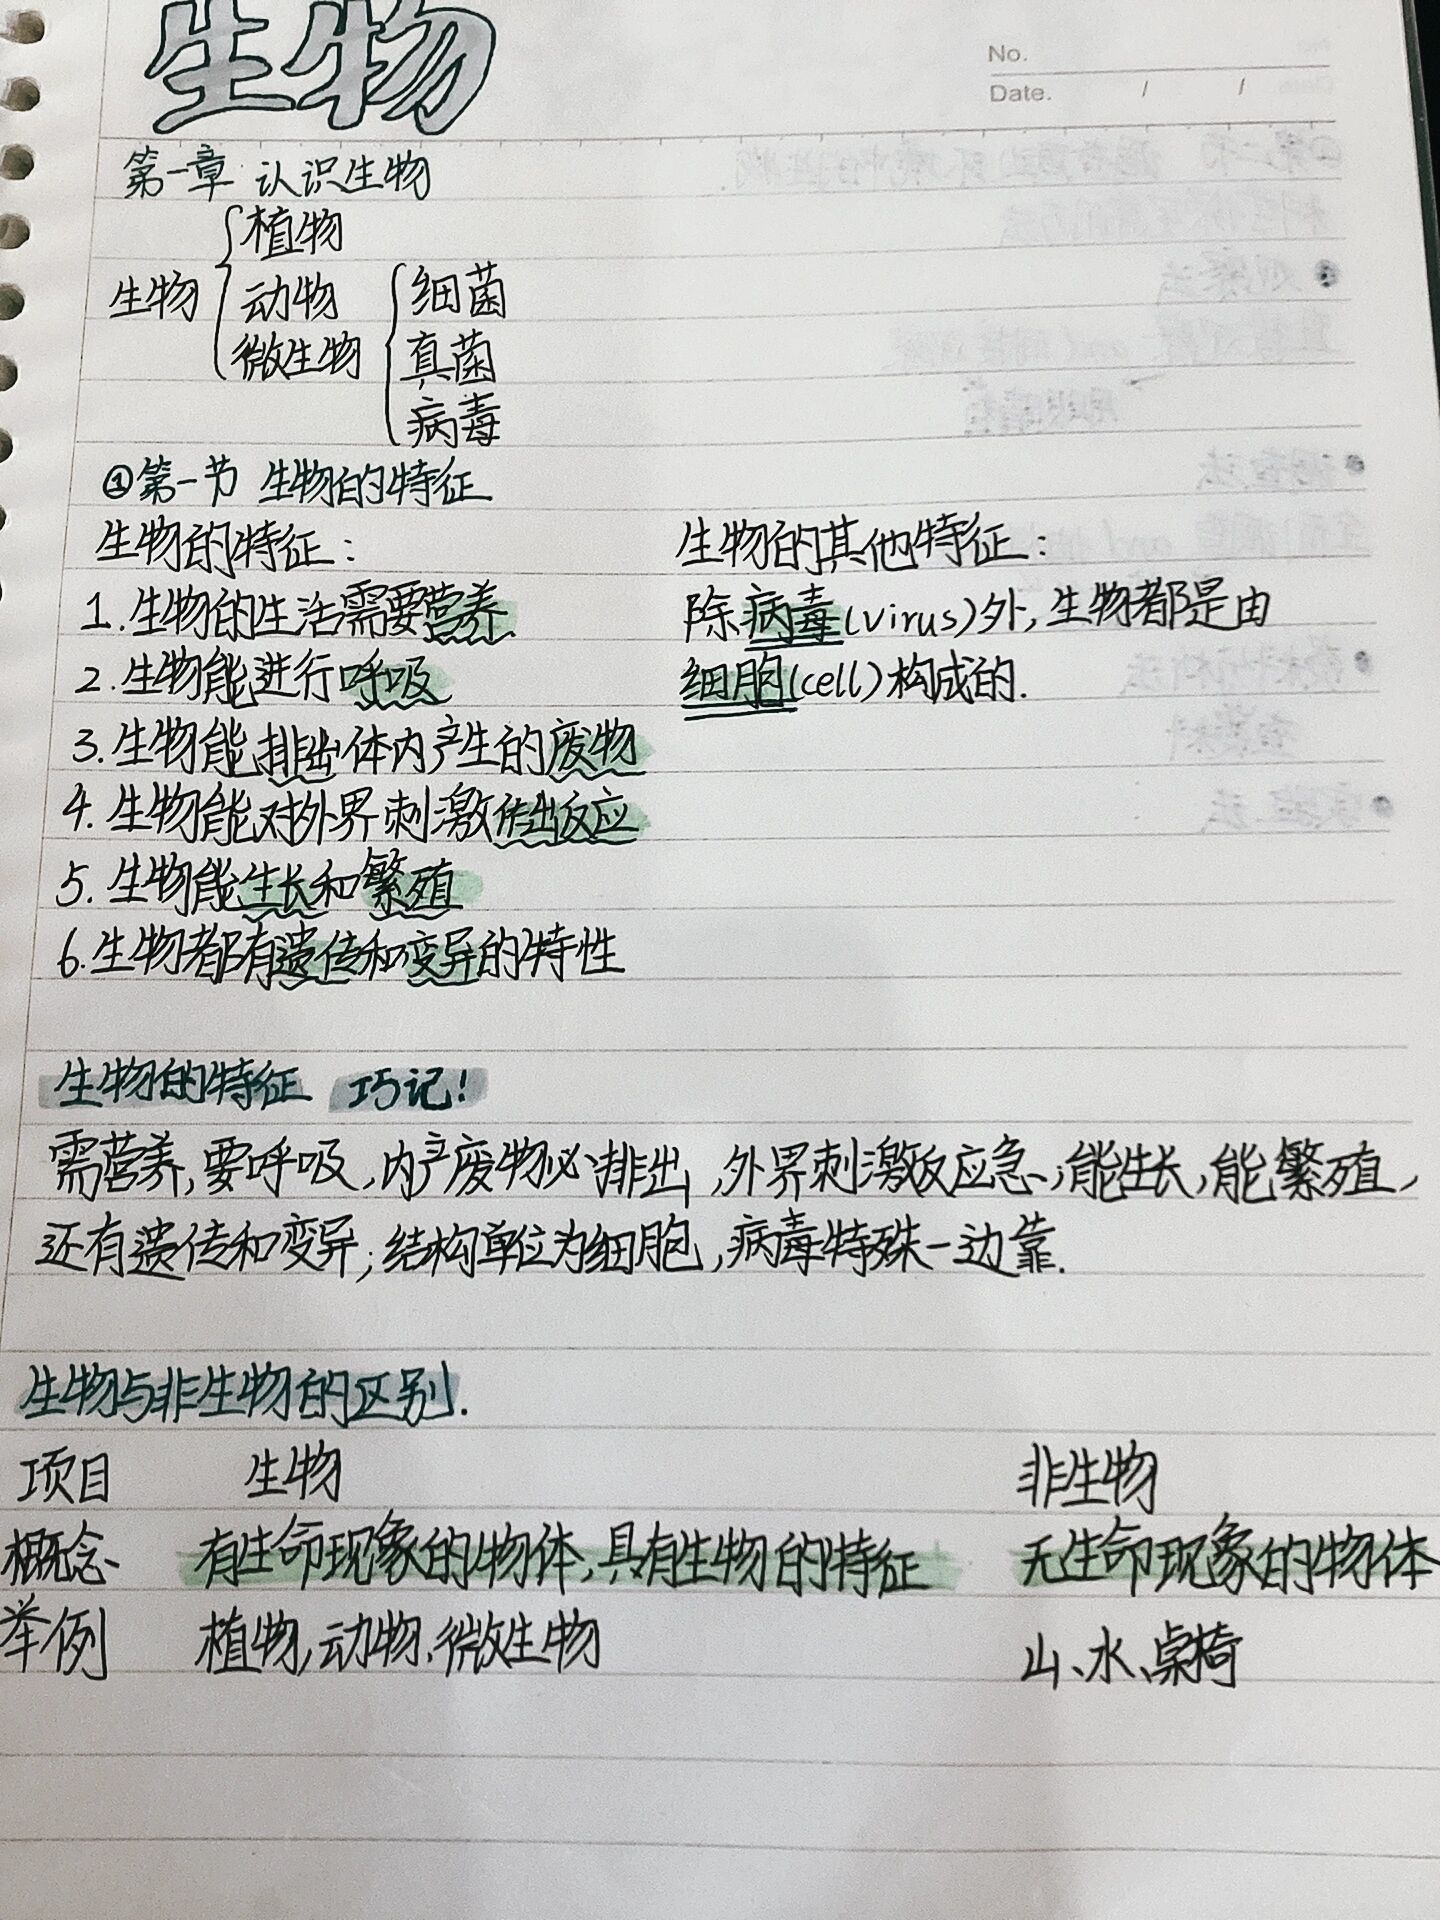 生物
No.
Date. / /
第一章 认识生物
植物
生物 动物 细菌
微生物 真菌
病毒
①第一节 生物的特征
生物的特征: 生物的其他特征:
1.生物的生活需要营养 除病毒(virus)外,生物都是由
2.生物能进行呼吸 细胞(cell)构成的.
3.生物能排出体内产生的废物
4.生物能对外界刺激作出反应
5.生物能生长和繁殖
6.生物都有遗传和变异的特性
生物的特征 巧记!
需营养,要呼吸,内产废物必排出,外界刺激反应急,能生长,能繁殖,
还有遗传和变异;结构单位为细胞,病毒特殊一边靠.
生物与非生物的区别.
项目 生物 非生物
概念 有生命现象的物体,具有生物的特征 无生命现象的物体
举例 植物,动物,微生物 山、水、桌椅